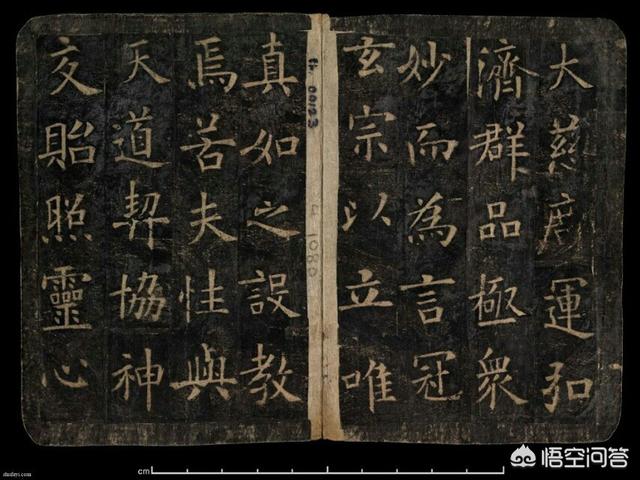 大慈運弘
濟群品極衆
妙而為言冠
玄宗以立唯
真如之設教
焉若夫性與
天道契協神
交貽照靈心
Ch. 00123
1080
cm
悟空问答